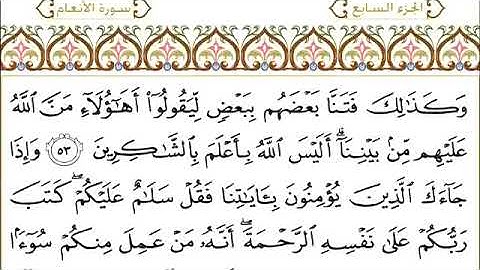 الجزء السابع سورة الأنعام
وَكَذَٰلِكَ فَتَنَّا بَعْضَهُم بِبَعْضٍ لِّيَقُولُوٓا۟ أَهَٰٓؤُلَآءِ مَنَّ ٱللَّهُ
عَلَيْهِم مِّنۢ بَيْنِنَآ ۗ أَلَيْسَ ٱللَّهُ بِأَعْلَمَ بِٱلشَّٰكِرِينَ ٥٣ وَإِذَا
جَآءَكَ ٱلَّذِينَ يُؤْمِنُونَ بِـَٔايَٰتِنَا فَقُلْ سَلَٰمٌ عَلَيْكُمْ ۖ كَتَبَ
رَبُّكُمْ عَلَىٰ نَفْسِهِ ٱلرَّحْمَةَ ۖ أَنَّهُۥ مَنْ عَمِلَ مِنكُمْ سُوٓءًۢا